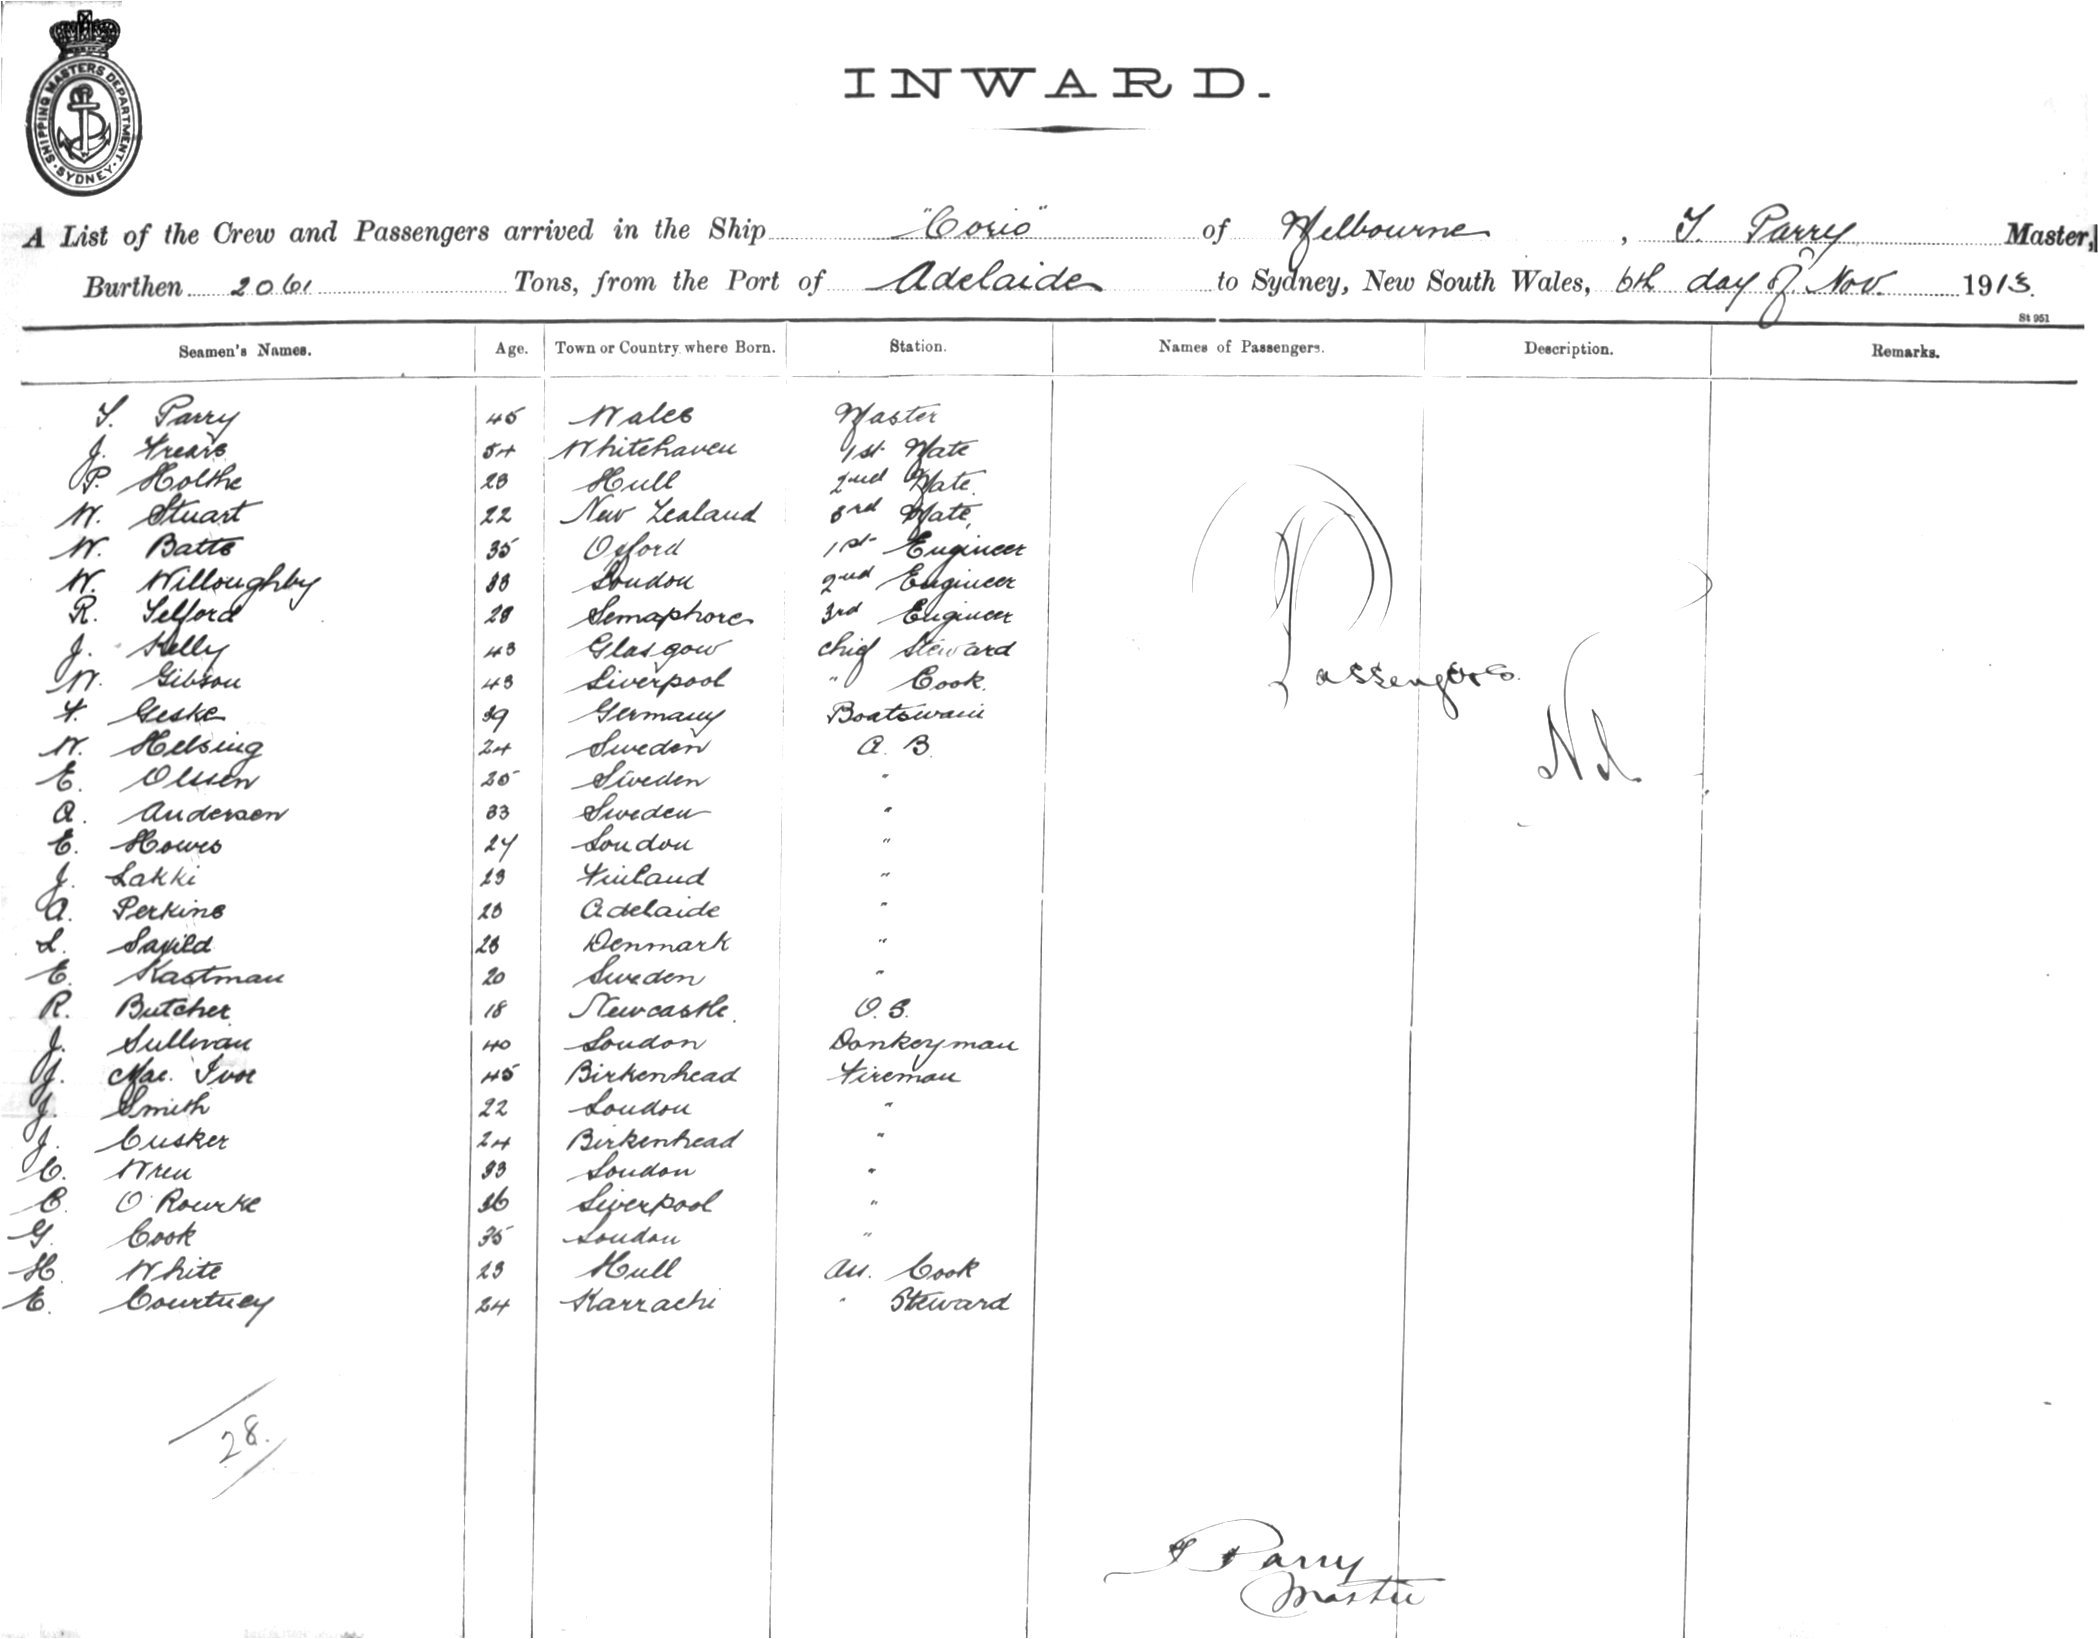 SHIPPING MASTERS DEPARTMENT · SYDNEY ·
INWARD.
A List of the Crew and Passengers arrived in the Ship "Corio" of Melbourne, T. Parry Master,
Burthen 2061 Tons, from the Port of Adelaide to Sydney, New South Wales, 6th day of Nov. 1913.
St 951
Seamen's Names. Age. Town or Country where Born. Station. Names of Passengers. Description. Remarks.
T. Parry 45 Wales Master
J. Frears 54 Whitehaven 1st Mate
P. Holthe 23 Hull 2nd Mate
W. Stuart 22 New Zealand 3rd Mate
W. Batts 35 Oxford 1st Engineer
W. Willoughby 33 London 2nd Engineer
R. Telford 28 Semaphore 3rd Engineer
J. Kelly 43 Glasgow Chief Steward
W. Gibson 43 Liverpool " Cook.
F. Geske 39 Germany Boatswain
W. Helsing 24 Sweden A. B.
E. Olssen 25 Sweden "
A. Andersen 33 Sweden "
E. Howes 24 London "
J. Lakki 23 Finland "
A. Perkins 23 Adelaide "
L. 23 Denmark "
E. Kastman 20 Sweden "
R. Butcher 18 Newcastle. O.S.
J. Sullivan 40 London Donkeyman
J. Mac. Ivor 45 Birkenhead Fireman
J. Smith 22 London "
J. Cusker 24 Birkenhead "
C. Wren 33 London "
C. O'Rourke 36 Liverpool "
G. Cook 35 London "
H. White 23 Hull Ass. Cook
E. Courtney 24 Karrachi " Steward
Passengers
Nil
28.
T Parry
Master